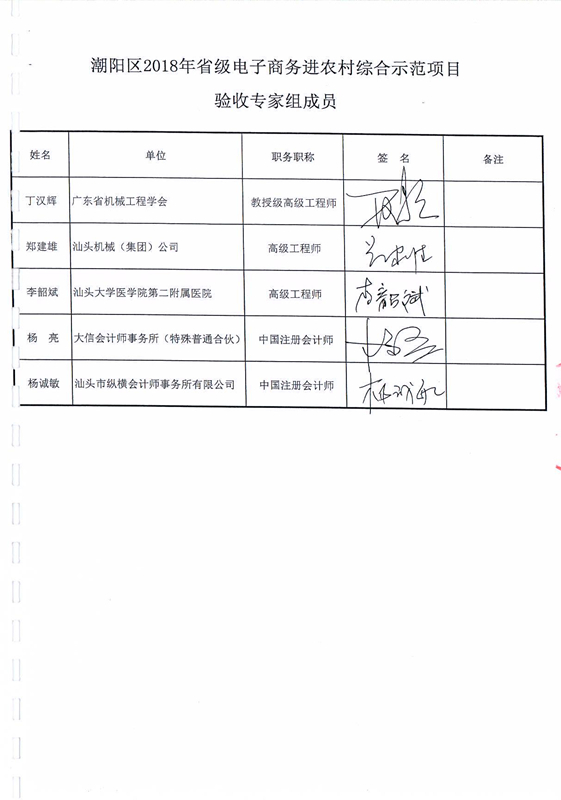 潮阳区2018年省级电子商务进农村综合示范项目
验收专家组成员
姓名 单位 职务职称 签 名 备注
丁汉辉 广东省机械工程学会 教授级高级工程师
郑建雄 汕头机械（集团）公司 高级工程师
李韶斌 汕头大学医学院第二附属医院 高级工程师 李韶斌
杨 亮 大信会计师事务所（特殊普通合伙） 中国注册会计师
杨诚敏 汕头市纵横会计师事务所有限公司 中国注册会计师